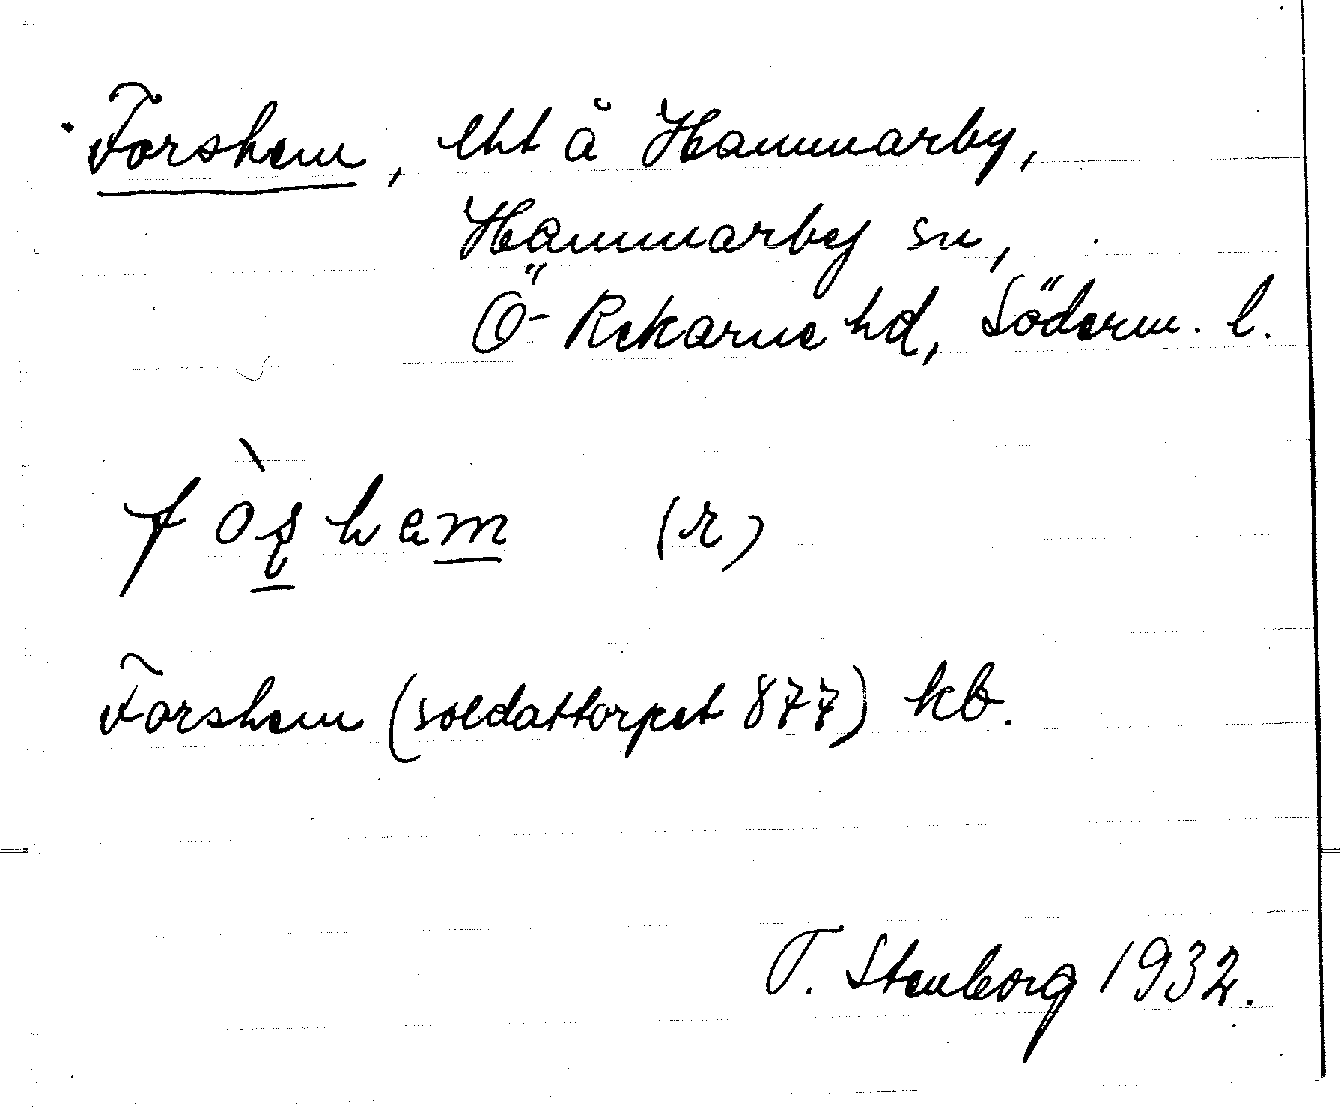 Forshem, lht å Hammarby,
Hammarby sn,
Ö-Rekarne hd, Söderm. l.
fòʂhem (r)
Forshem (soldattorpet 877) kb.
T. Stenborg 1932.